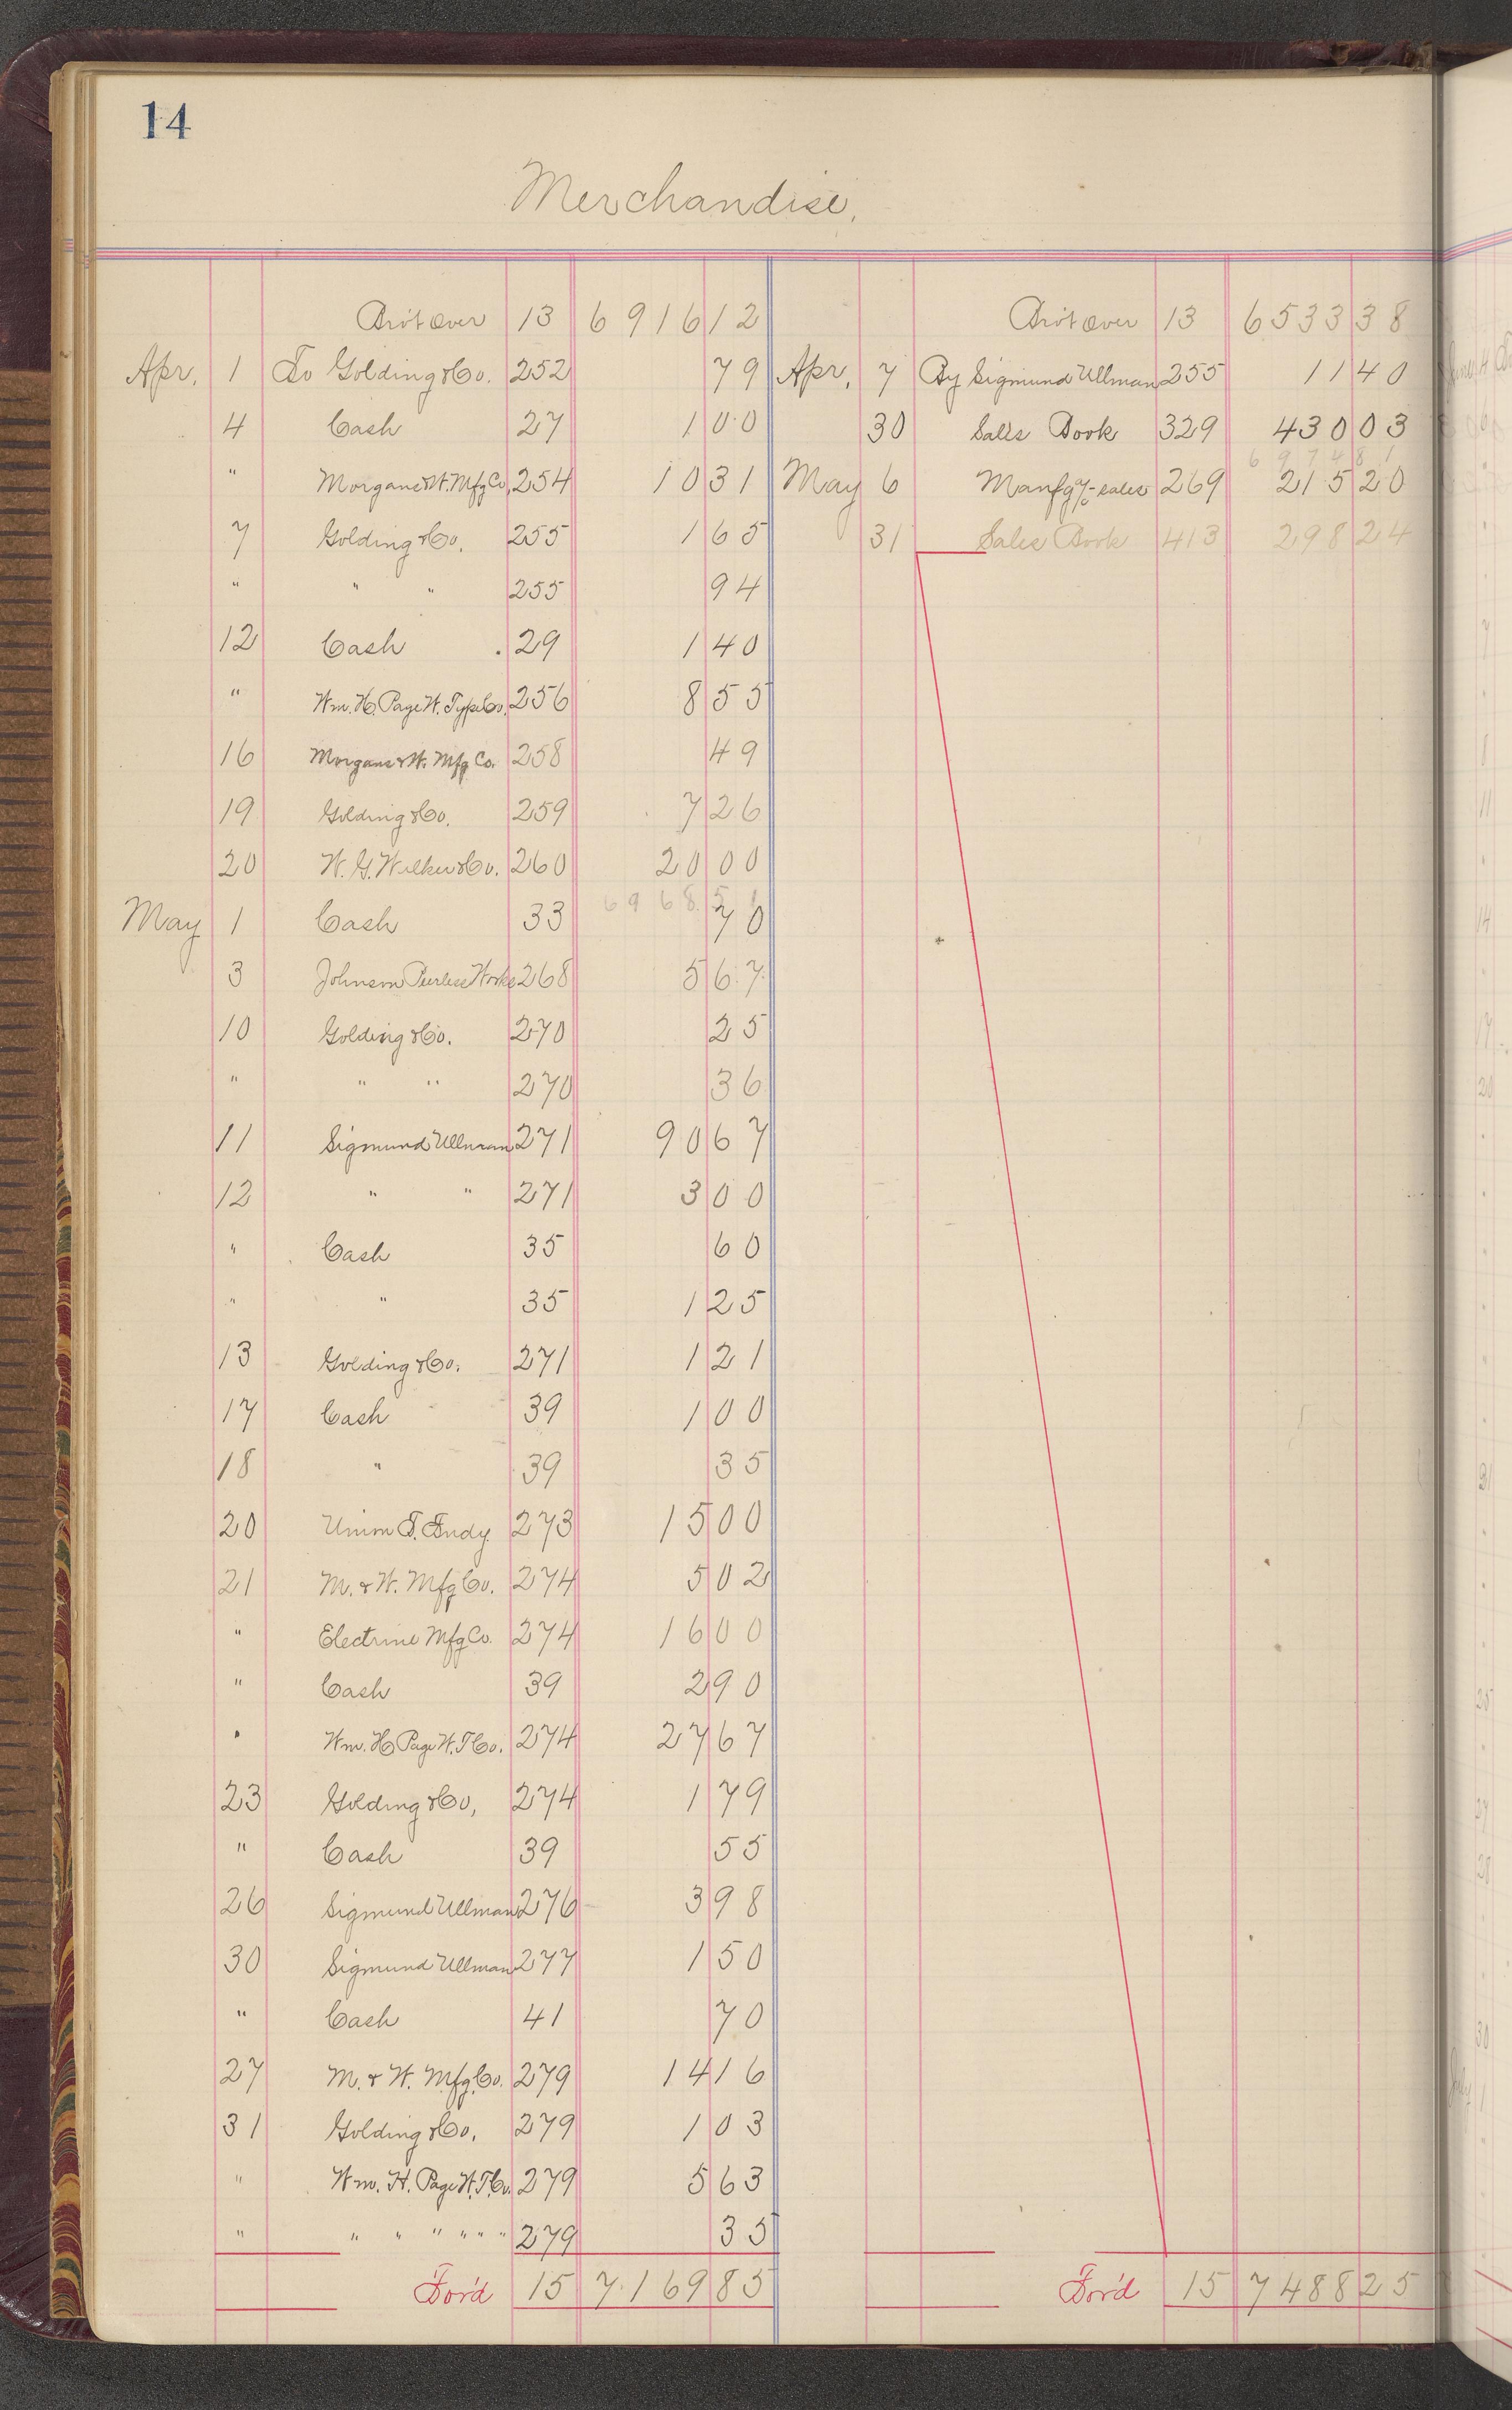 14
Merchandise.
Bro't Over 13 6916 12
Apr. 1 To Golding & Co. 252 79
4 Cash 27 1 00
" Morgans & W. Mfg Co. 254 10 31
7 Golding & Co. 255 1 65
" " " 255 94
12 Cash 29 1 40
" Wm. H. Page W. Type Co. 256 8 55
16 Morgans & W. Mfg Co. 258 49
19 Golding & Co. 259 7 26
20 W. G. Walker & Co. 260 20 00
6968.51
May 1 Cash 33 70
3 Johnson Peerless Works 268 5 67
10 Golding & Co. 270 25
" " " 270 36
11 Sigmund Ullman 271 90 67
12 " " 271 3 00
" Cash 35 60
" " 35 1 25
13 Golding & Co. 271 1 21
17 Cash 39 1 00
18 " 39 35
20 Union T. Fndy. 273 15 00
21 M. & W. Mfg Co. 274 5 02
" Electrine Mfg Co. 274 16 00
" Cash 39 2 90
" Wm. H. Page W. T. Co. 274 27 67
23 Golding & Co, 274 1 79
" Cash 39 55
26 Sigmund Ullman 276 3 98
30 Sigmund Ullman 277 1 50
" Cash 41 70
27 M. & W. Mfg. Co. 279 14 16
31 Golding & Co. 279 1 03
" Wm. H. Page W. T. Co. 279 5 63
" " " " " " " 279 35
For'd 15 7169 85
Bro't Over 13 6533 38
Apr. 7 By Sigmund Ullman 255 11 40
30 Sales Book 329 430 03
6974 81
May 6 Manfg a/c - sales 269 215 20
31 Sales Book 413 298 24
For'd 15 7488 25